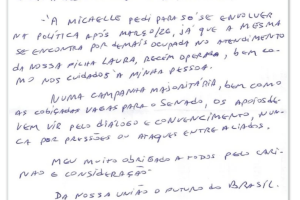 - "À MICHELLE PEDI PARA SÓ SE ENVOLVER
NA POLÍTICA APÓS MARÇO/26, JÁ QUE A MESMA
SE ENCONTRA POR DEMAIS OCUPADA NO ATENDIMENTO
DA NOSSA FILHA LAURA, RECÉM OPERADA, BEM CO-
MO NOS CUIDADOS À MINHA PESSOA.
NUMA CAMPANHA MAJORITÁRIA, BEM COMO
AS COBIÇADAS VAGAS PARA O SENADO, OS APOIOS DE-
VEM VIR PELO DIÁLOGO E CONVENCIMENTO, NUN-
CA POR PRESSÕES OU ATAQUES ENTRE ALIADOS.
MEU MUITO OBRIGADO A TODOS PELO CARI-
NHO E CONSIDERAÇÃO
DA NOSSA UNIÃO O FUTURO DO BRASIL.